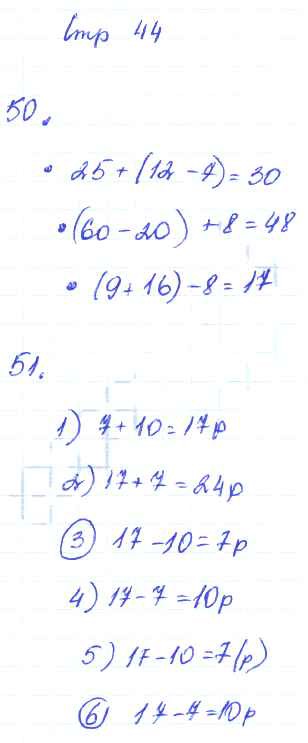 Стр 44
50.
• 25 + (12 - 7) = 30
• (60 - 20) + 8 = 48
• (9 + 16) - 8 = 17
51.
1) 7 + 10 = 17р
2) 17 + 7 = 24р
3 17 - 10 = 7р
4) 17 - 7 = 10р
5) 17 - 10 = 7(р)
6) 17 - 7 = 10р